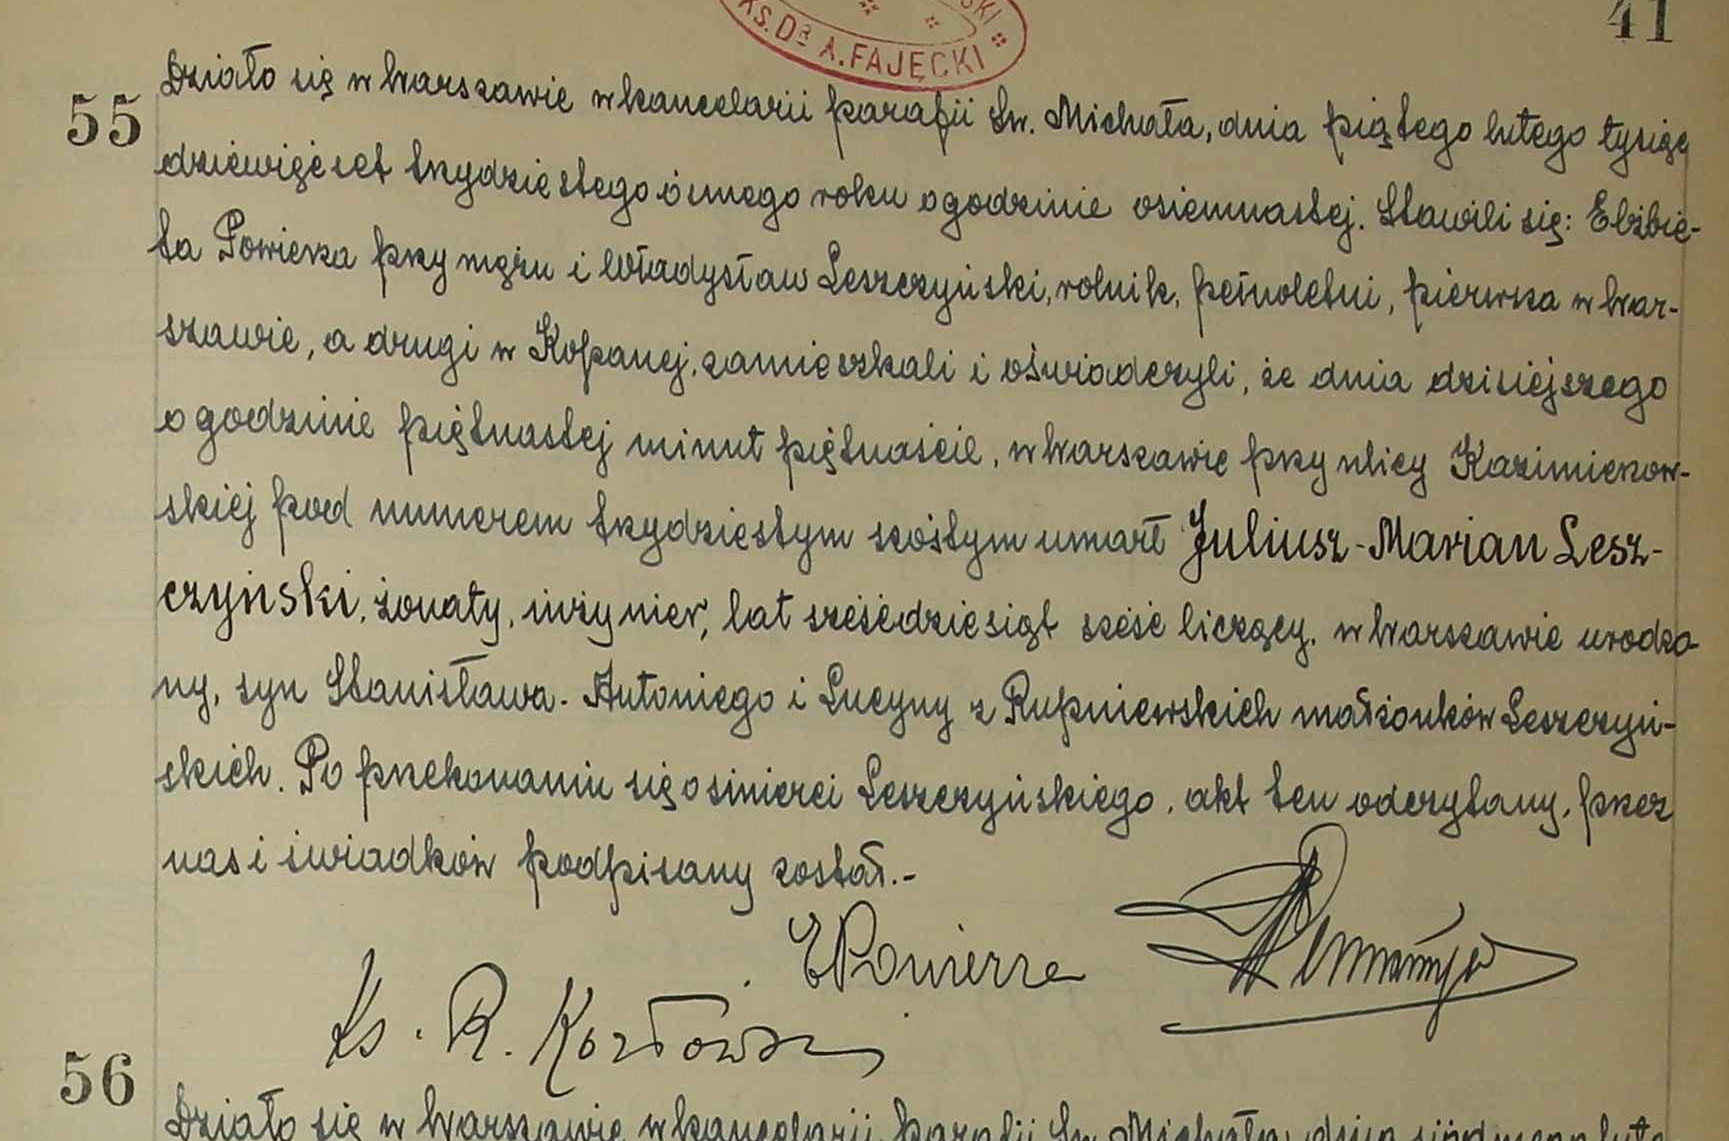 41
KS. DR A. FAJĘCKI
55
Działo się w Warszawie w kancelarii parafii Św. Michała, dnia piątego lutego tysiąc
dziewięćset trzydziestego ósmego roku o godzinie osiemnastej. Stawili się: Elżbie-
ta Powierza przy mężu i Władysław Leszczyński, rolnik, pełnoletni, pierwsza w War-
szawie, a drugi w Kopanej, zamieszkali i oświadczyli, że dnia dzisiejszego
o godzinie piętnastej minut piętnaście, w Warszawie przy ulicy Kazimierzow-
skiej pod numerem trzydziestym szóstym umarł Juliusz-Marian Lesz-
czyński, żonaty, inżynier, lat sześćdziesiąt sześć liczący, w Warszawie urodzo-
ny, syn Stanisława-Antoniego i Lucyny z Rupniewskich małżonków Leszczyń-
skich. Po przekonaniu się o śmierci Leszczyńskiego, akt ten odczytany, przez
nas i świadków podpisany został.-
EPowierza
Ks. R. Kozłowski
56
Działo się w Warszawie w kancelarii parafii Św. Michała, dnia siódmego lute